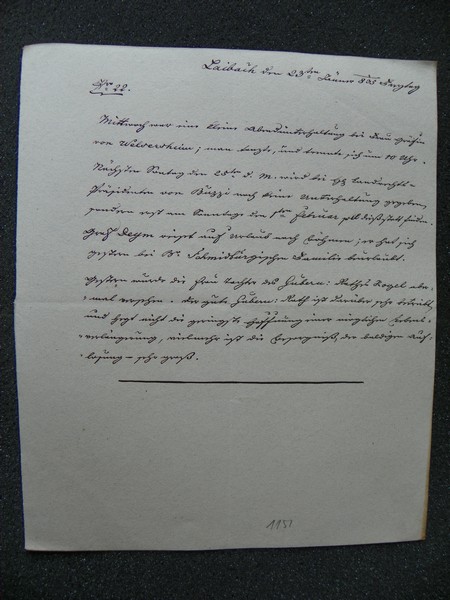 Laibach den 23ten Jänner 835 Freytag
No 22.
Mittwoch war eine kleine Abendunterhaltung bei Frau Gräfin
von Welsersheim; man tanzte, und trennte sich um 10 Uhr.
Nächsten Sontag den 25ten d. M. wird bei H Landrechts-
Präsidenten von Buzzi noch keine Unterhaltung gegeben,
sondern erst am Sonntage den 1ten Februar statt finden.
Graf Deym reiset auf Urlaub nach Böhmen; er hat sich
gestern bei Br Schmidburgischen Familie beurlaubt.
Gestern wurde die Frau Tochter des Gubern: Raths Vogel aber-
mal versehen. Der gute Gubern: Rath ist darüber sehr betrübt,
und hegt nicht die geringste Hoffnung einer möglichen Lebens-
verlängerung, vielmehr ist die Besorgniß, der baldigen Auf-
lösung – sehr groß.
1151